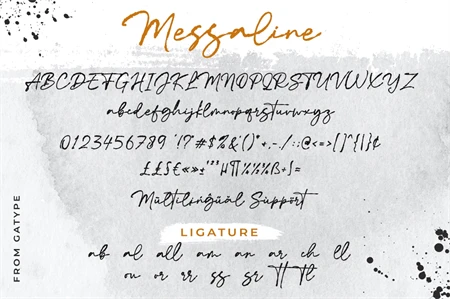 Messaline
ABCDEFGHIJKLMNOPQRSTUVWXYZ
abcdefghijklmnopqrstuvwxyz
0123456789
Multilingual Support
LIGATURE
ab al all am an ar ch ll
ou or rr ss sr tt tl
FROM GATYPE